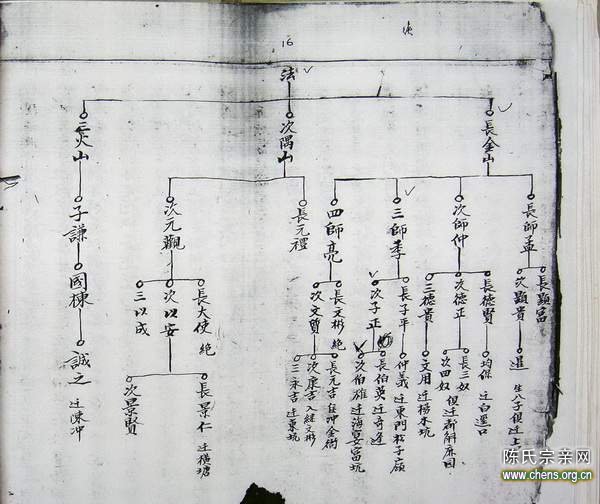 16
法
長金山
次隅山
三炎山
長師孟
次師仲
三師季
四師亮
長元禮
次元觀
子謙
國棟
誠之 迁陳沖
長顯富
次顯貴
進 生八子俱迁上
長德賢
次德正
三德貴
長子平
次子正
長文彬 絶
次文質
長大使 絶
次以安
三以成
均保 迁白還口
長三奴
次四奴 俱迁新斛麻园
文用 迁楊木坑
仲義 迁東門松子嶺
長伯英 迁奇逢
次伯雄 迁海宴富坑
長元吉 住冲金街
次康吉 入繼文彬
三永吉 迁東坑
長景仁 迁橫塘
次景賢
陈氏宗亲网
www.chens.org.cn